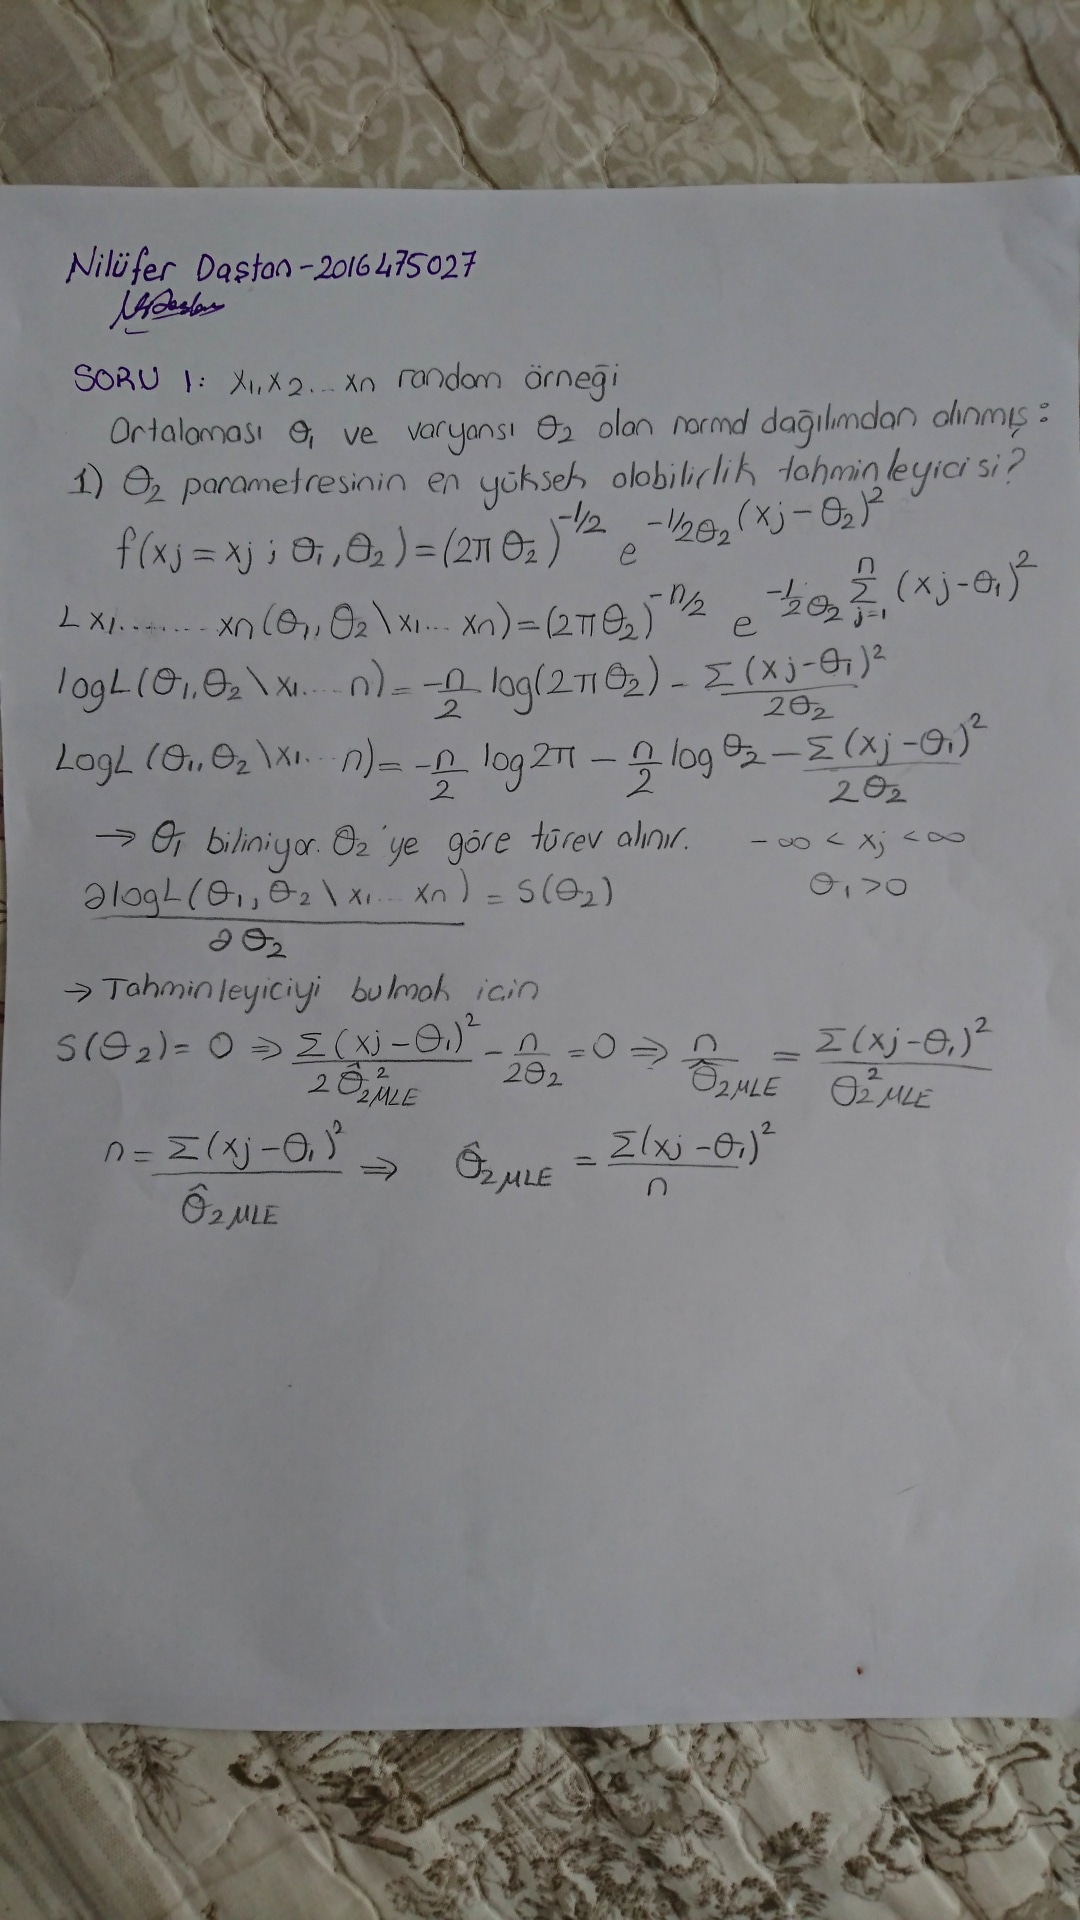 Nilüfer Daştan-2016475027
SORU 1: x₁, x₂... xn random örneği
Ortalaması θ₁ ve varyansı θ₂ olan normal dağılımdan alınmış:
1) θ₂ parametresinin en yüksek olabilirlik tahminleyicisi?
f(xj = xj ; θ₁, θ₂) = (2π θ₂)^-1/2 e^-1/2θ₂ (xj - θ₂)²
L x₁........ xn (θ₁, θ₂ \ x₁... xn) = (2πθ₂)^-n/2 e^-1/2θ₂ Σ_{j=1}^{n} (xj-θ₁)²
logL(θ₁, θ₂ \ x₁.... n) = -n/2 log(2πθ₂) - Σ(xj-θ₁)² / 2θ₂
LogL (θ₁, θ₂ \ x₁... n) = -n/2 log2π - n/2 log θ₂ - Σ(xj-θ₁)² / 2θ₂
→ θ₁ biliniyor. θ₂'ye göre türev alınır. -∞ < xj < ∞
θ₁ > 0
∂logL(θ₁, θ₂ \ x₁... xn) / ∂θ₂ = S(θ₂)
→ Tahminleyiciyi bulmak icin
S(θ₂) = 0 ⇒ Σ(xj-θ₁)² / 2θ̂₂²MLE - n/2θ₂ = 0 ⇒ n/θ̂₂MLE = Σ(xj-θ₁)² / θ₂²MLE
n = Σ(xj-θ₁)² / θ̂₂MLE ⇒ θ̂₂MLE = Σ(xj-θ₁)² / n